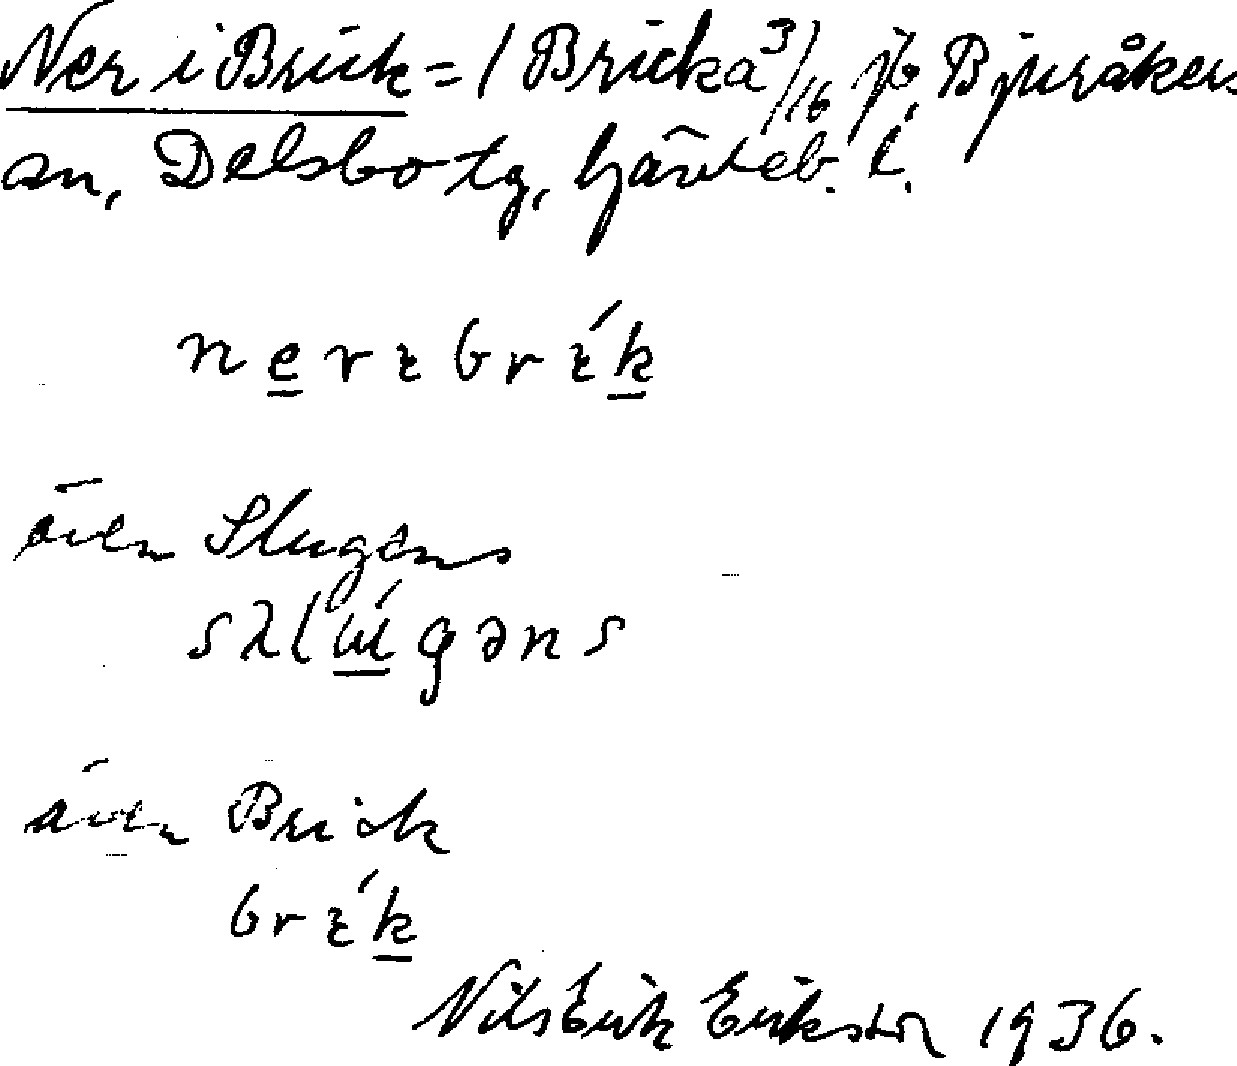 Ner i Brick = / Bricka 3/16 jb, Bjuråkers
sn, Delsbo tg, Gävleb. l.
nerɩbrɩ́k
även Slugens
sλlɯ́gəns
även Brick
brɩ́k
Nils Erik Erikson 1936.